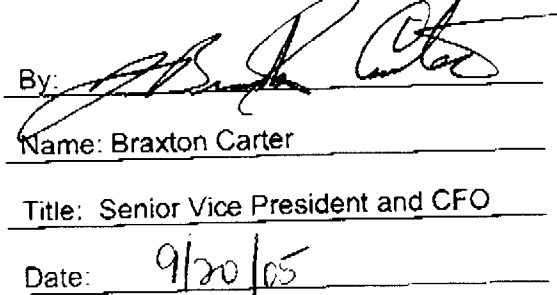 By: J Braxton Carter
Name: Braxton Carter
Title: Senior Vice President and CFO
Date: 9/20/05